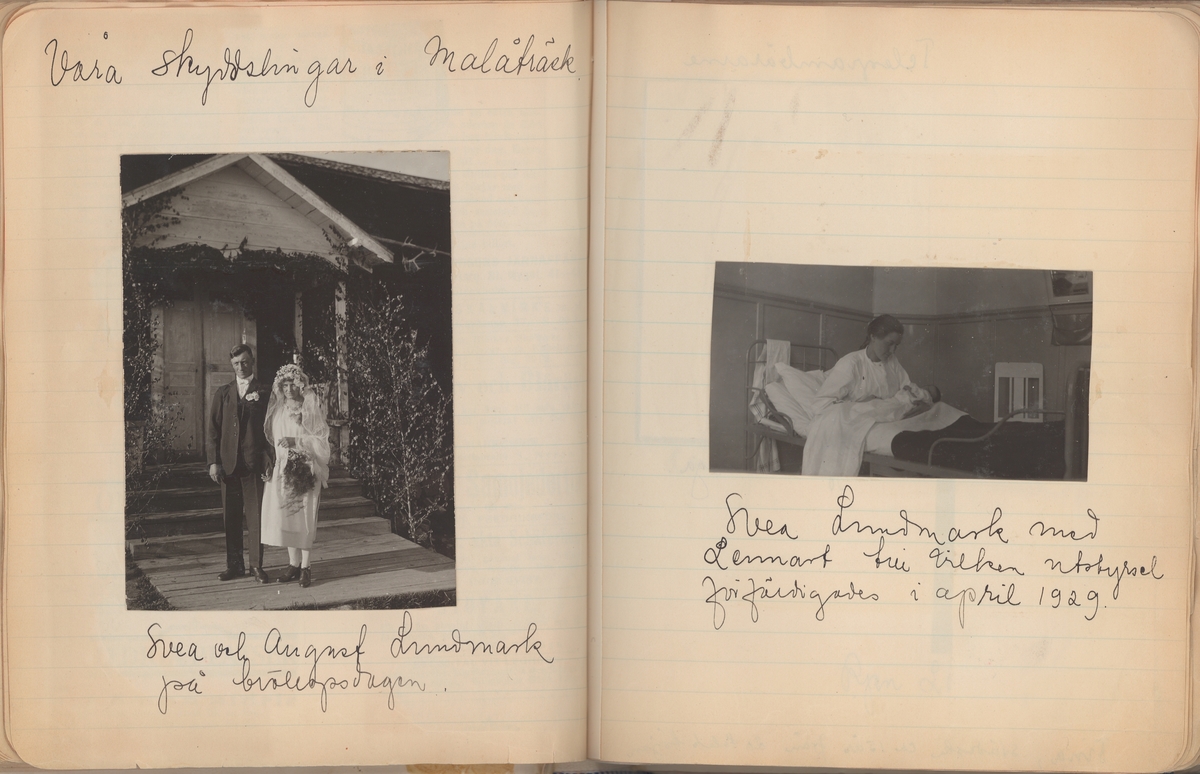 Våra skyddslingar i Malåträsk
Svea och August Lundmark
på bröllopsdagen.
Svea Lundmark med
Lennart till vilken utstyrsel
förfärdigades i april 1929.